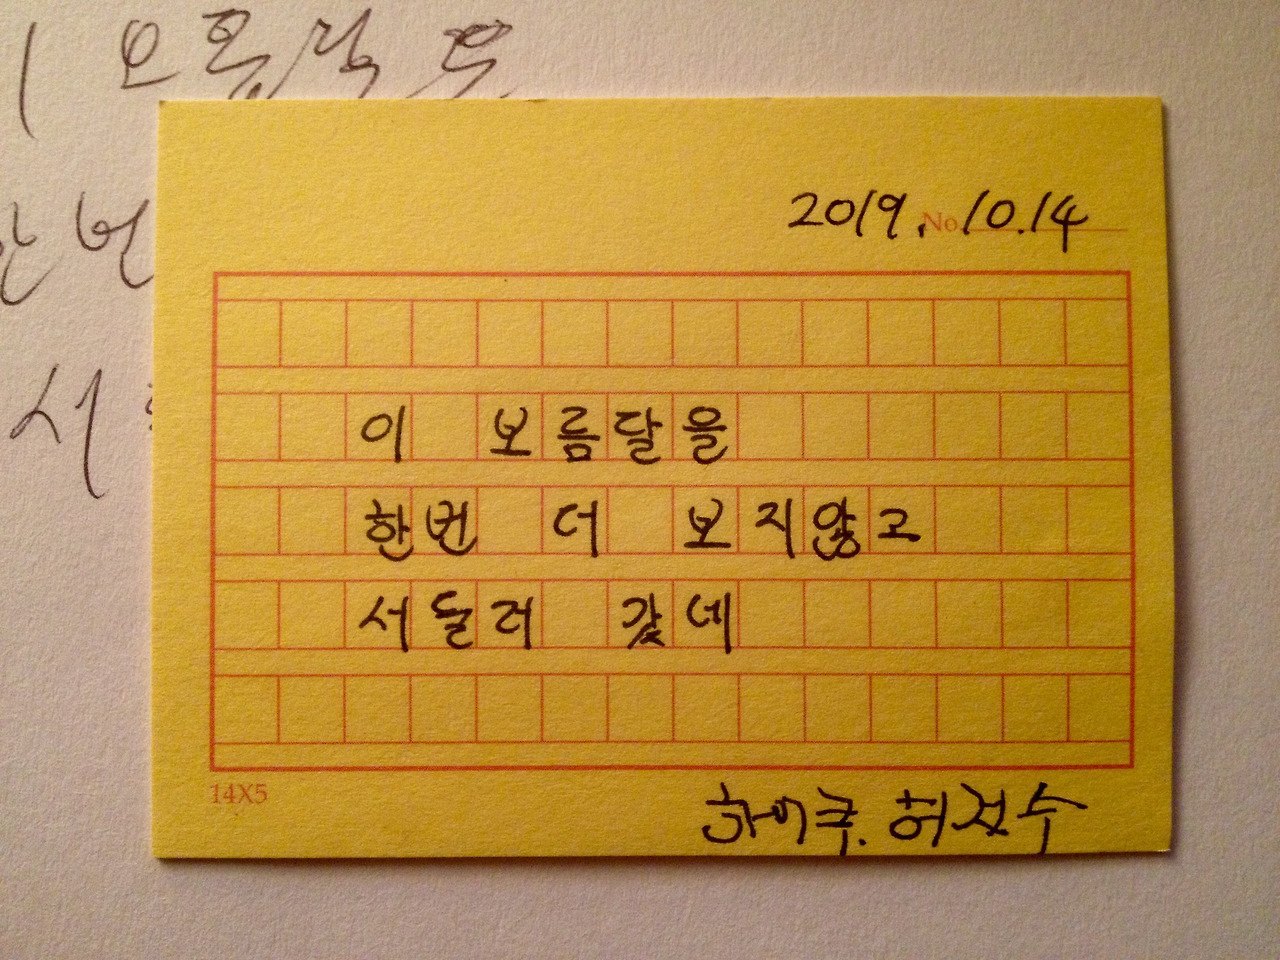 2019. No. 10.14
이 보름달을
한번 더 보지않고
서둘러 갔네
14X5
하이쿠. 허정수
한 번
서